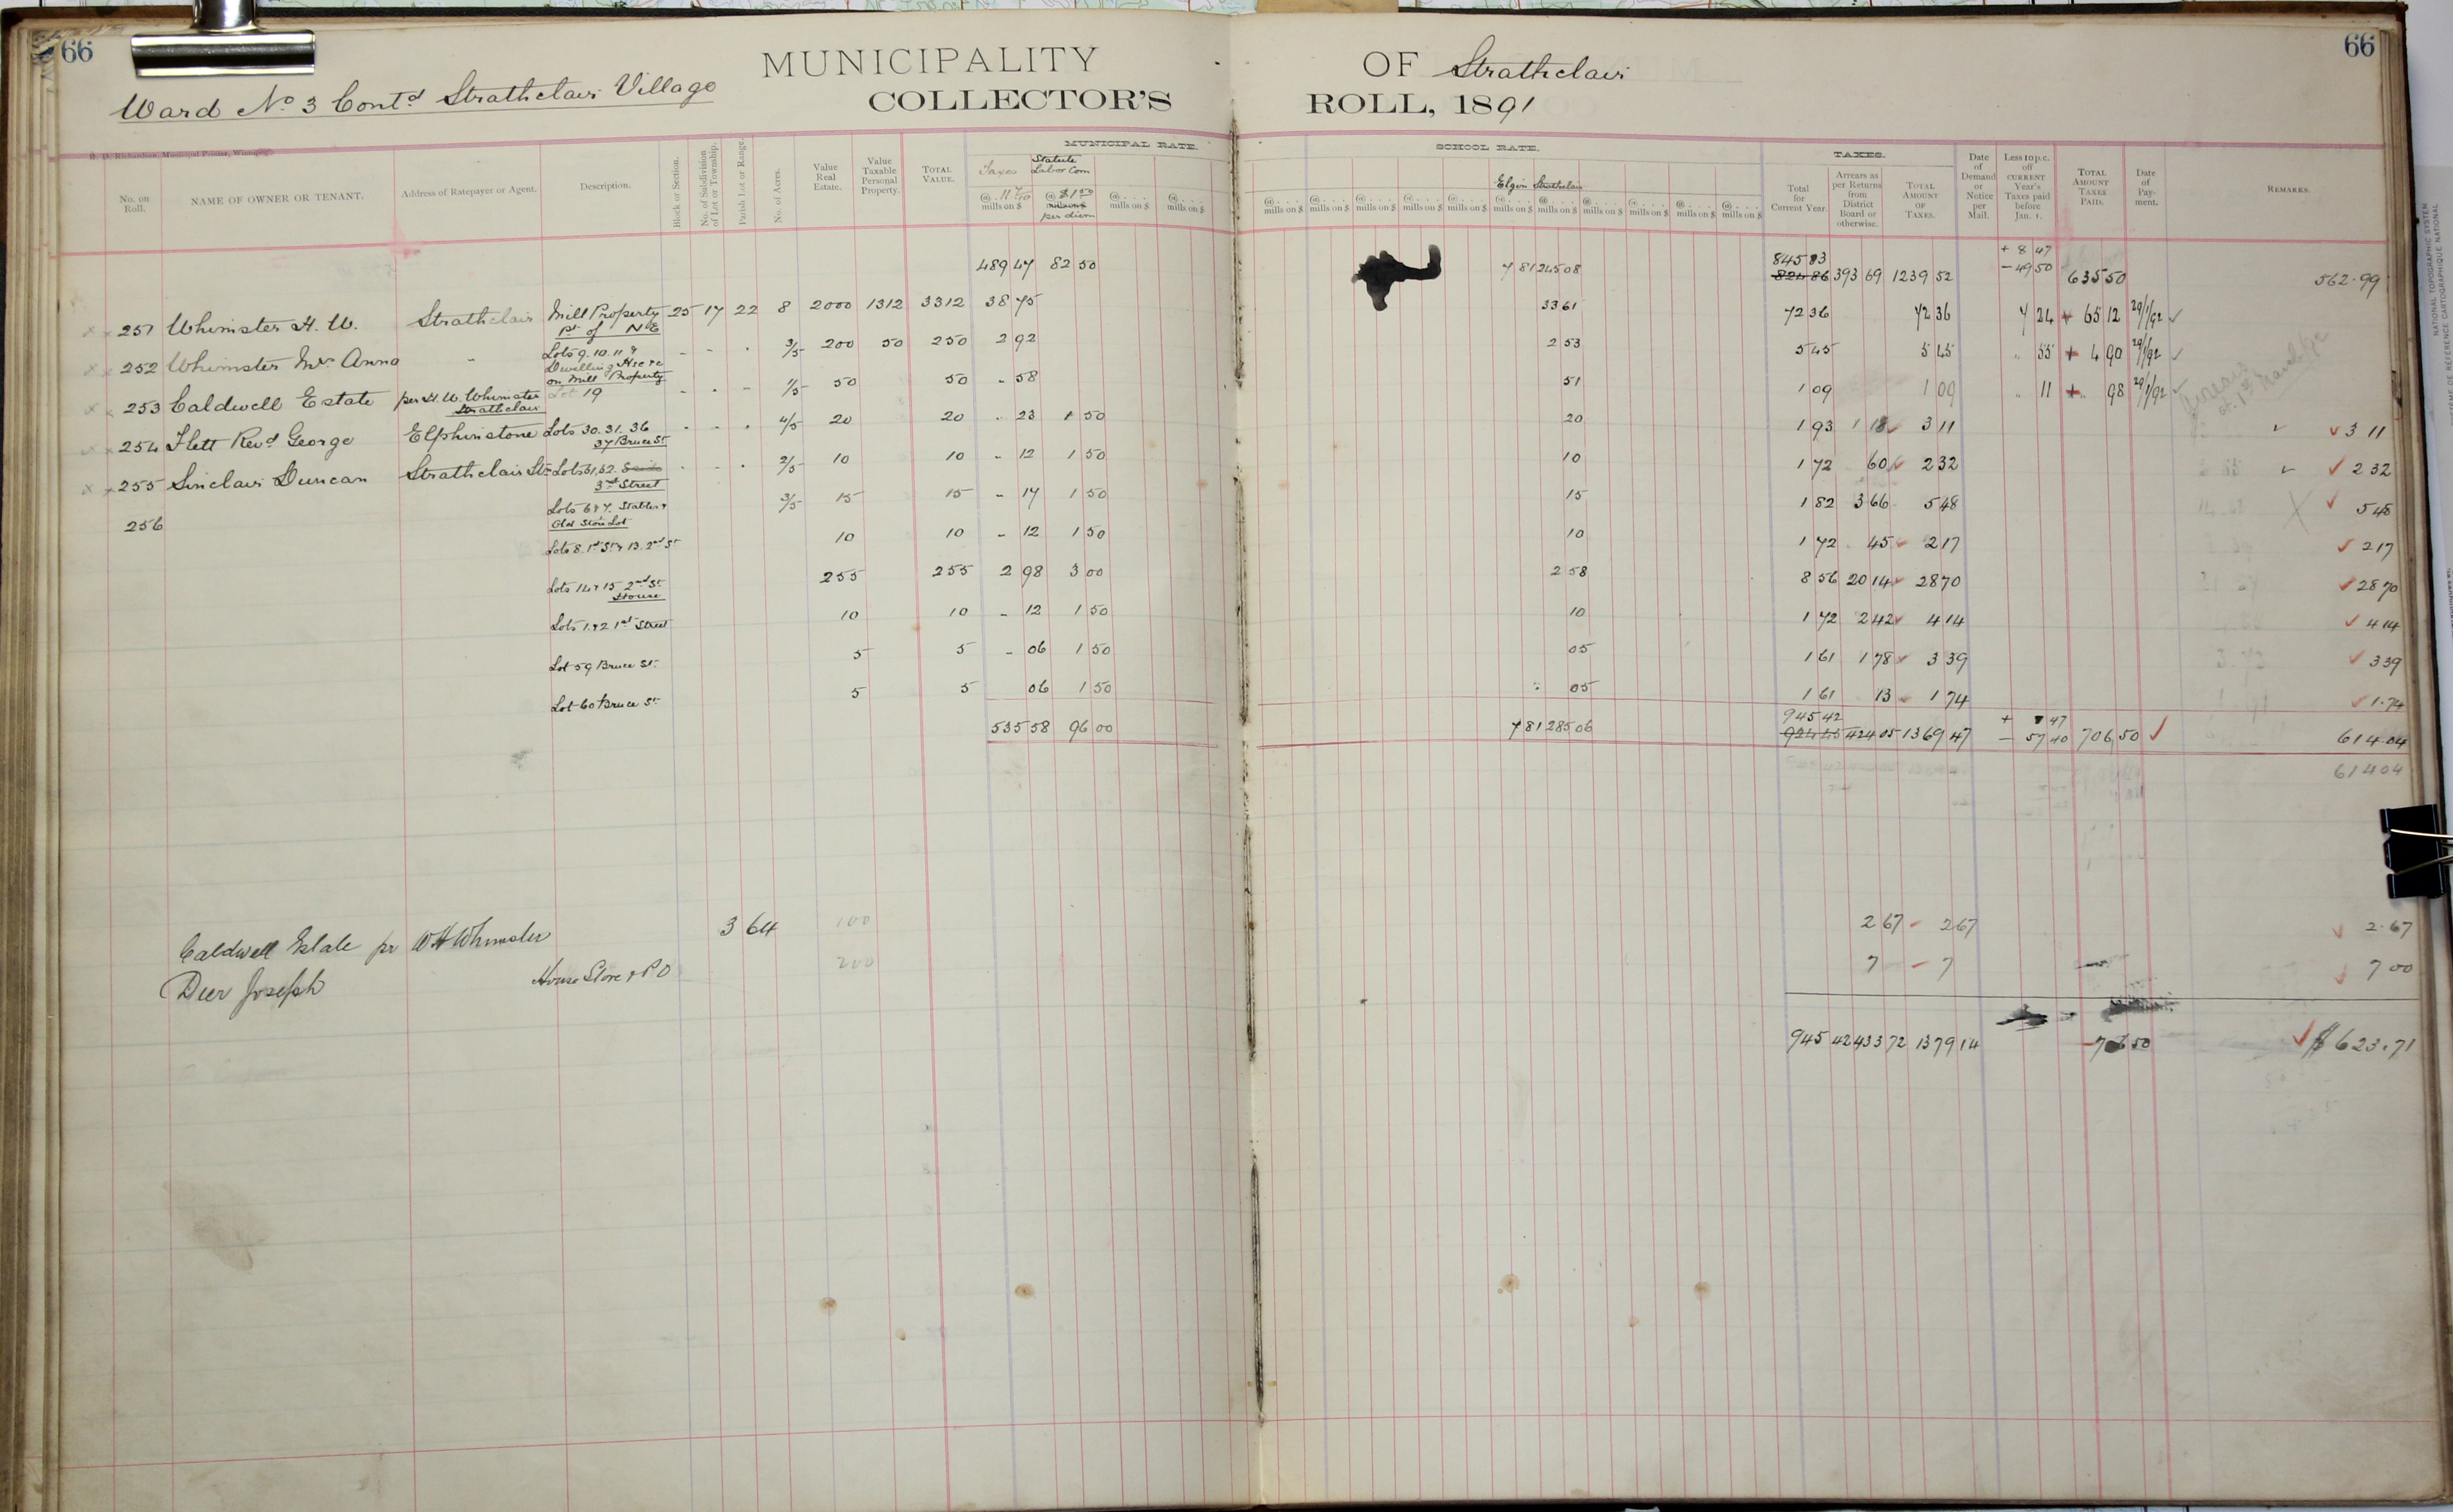 66
66
MUNICIPALITY OF Strathclair
Ward No 3 Contd Strathclair Village
COLLECTOR'S ROLL, 1891
R. D. Richardson, Municipal Printer, Winnipeg.
MUNICIPAL RATE.
SCHOOL RATE.
TAXES.
No. on Roll.
NAME OF OWNER OR TENANT.
Address of Ratepayer or Agent.
Description.
Block or Section.
No. of Subdivision of Lot or Township.
Parish Lot or Range.
No. of Acres.
Value Real Estate.
Value Taxable Personal Property.
TOTAL VALUE.
Taxes @ 11 7/10 mills on $
Statute Labor Com @ $1 50 mills on $ per diem
@ . . . . mills on $
@ . . . . mills on $
Elgin Strathclair
@ . . . . mills on $ @ . . . . mills on $ @ . . . . mills on $ @ . . . . mills on $ @ . . . . mills on $ @ . . . . mills on $ @ . . . . mills on $ @ . . . . mills on $ @ . . . . mills on $ @ . . . . mills on $ @ . . . . mills on $
Total for Current Year.
Arrears as per Returns from District Board or otherwise.
TOTAL AMOUNT OF TAXES.
Date of Demand or Notice per Mail.
Less 10 p.c. off CURRENT Year's Taxes paid before Jan. 1.
TOTAL AMOUNT TAXES PAID.
Date of Payment.
REMARKS.
489 47 82 50 7 81 245 08 845 83 824 86 393 69 1239 52 + 8 47 - 49 50 635 50 562.99
251 Whimster H. W. Strathclair Mill Property pt of NE 25 17 22 8 2000 1312 3312 38 75 33 61 72 36 72 36 7 24 + 65 12 29/1/92
252 Whimster Mrs Anna " Lots 9. 10. 11 & Dwelling Hse &c on Mill Property 3/5 200 50 250 2 92 2 53 5 45 5 45 " 55 + 4 90 29/1/92
253 Caldwell Estate per H. W. Whimster Strathclair Lot 19 1/5 50 50 58 51 1 09 1 09 11 + 98 29/1/92
254 Flett Revd George Elphinstone Lots 30. 31. 36 37 Bruce St 4/5 20 20 23 1 50 20 1 93 1 18 3 11 3 11
255 Sinclair Duncan Strathclair Stn Lots 31, 32. 3rd Street 2/5 10 10 12 1 50 10 1 72 60 2 32 2 32
256 Lots 6 & 7. Stables & Old Store Lot 3/5 15 15 17 1 50 15 1 82 3 66 5 48 5 48
Lots 8. 1st St & 13. 2nd St 10 10 12 1 50 10 1 72 45 2 17 2 17
Lots 14 & 15 2nd St House 255 255 2 98 3 00 2 58 8 56 20 14 28 70 28 70
Lots 1 & 2 1st Street 10 10 12 1 50 10 1 72 2 42 4 14 4 14
Lot 59 Bruce St. 5 5 06 1 50 05 1 61 1 78 3 39 3 39
Lot 60 Bruce St 5 5 06 1 50 05 1 61 13 1 74 1.74
535 58 96 00 7 81 285 06 945 42 924 45 424 05 1369 47 + 8 47 - 57 40 706 50 614.04
614 04
Caldwell Estate pr W H Whimster 3 64 100 2 67 2 67 2.67
Dier Joseph House Store & P O 200 7 7 7 00
945 42 433 72 1379 14 706 50 $623.71